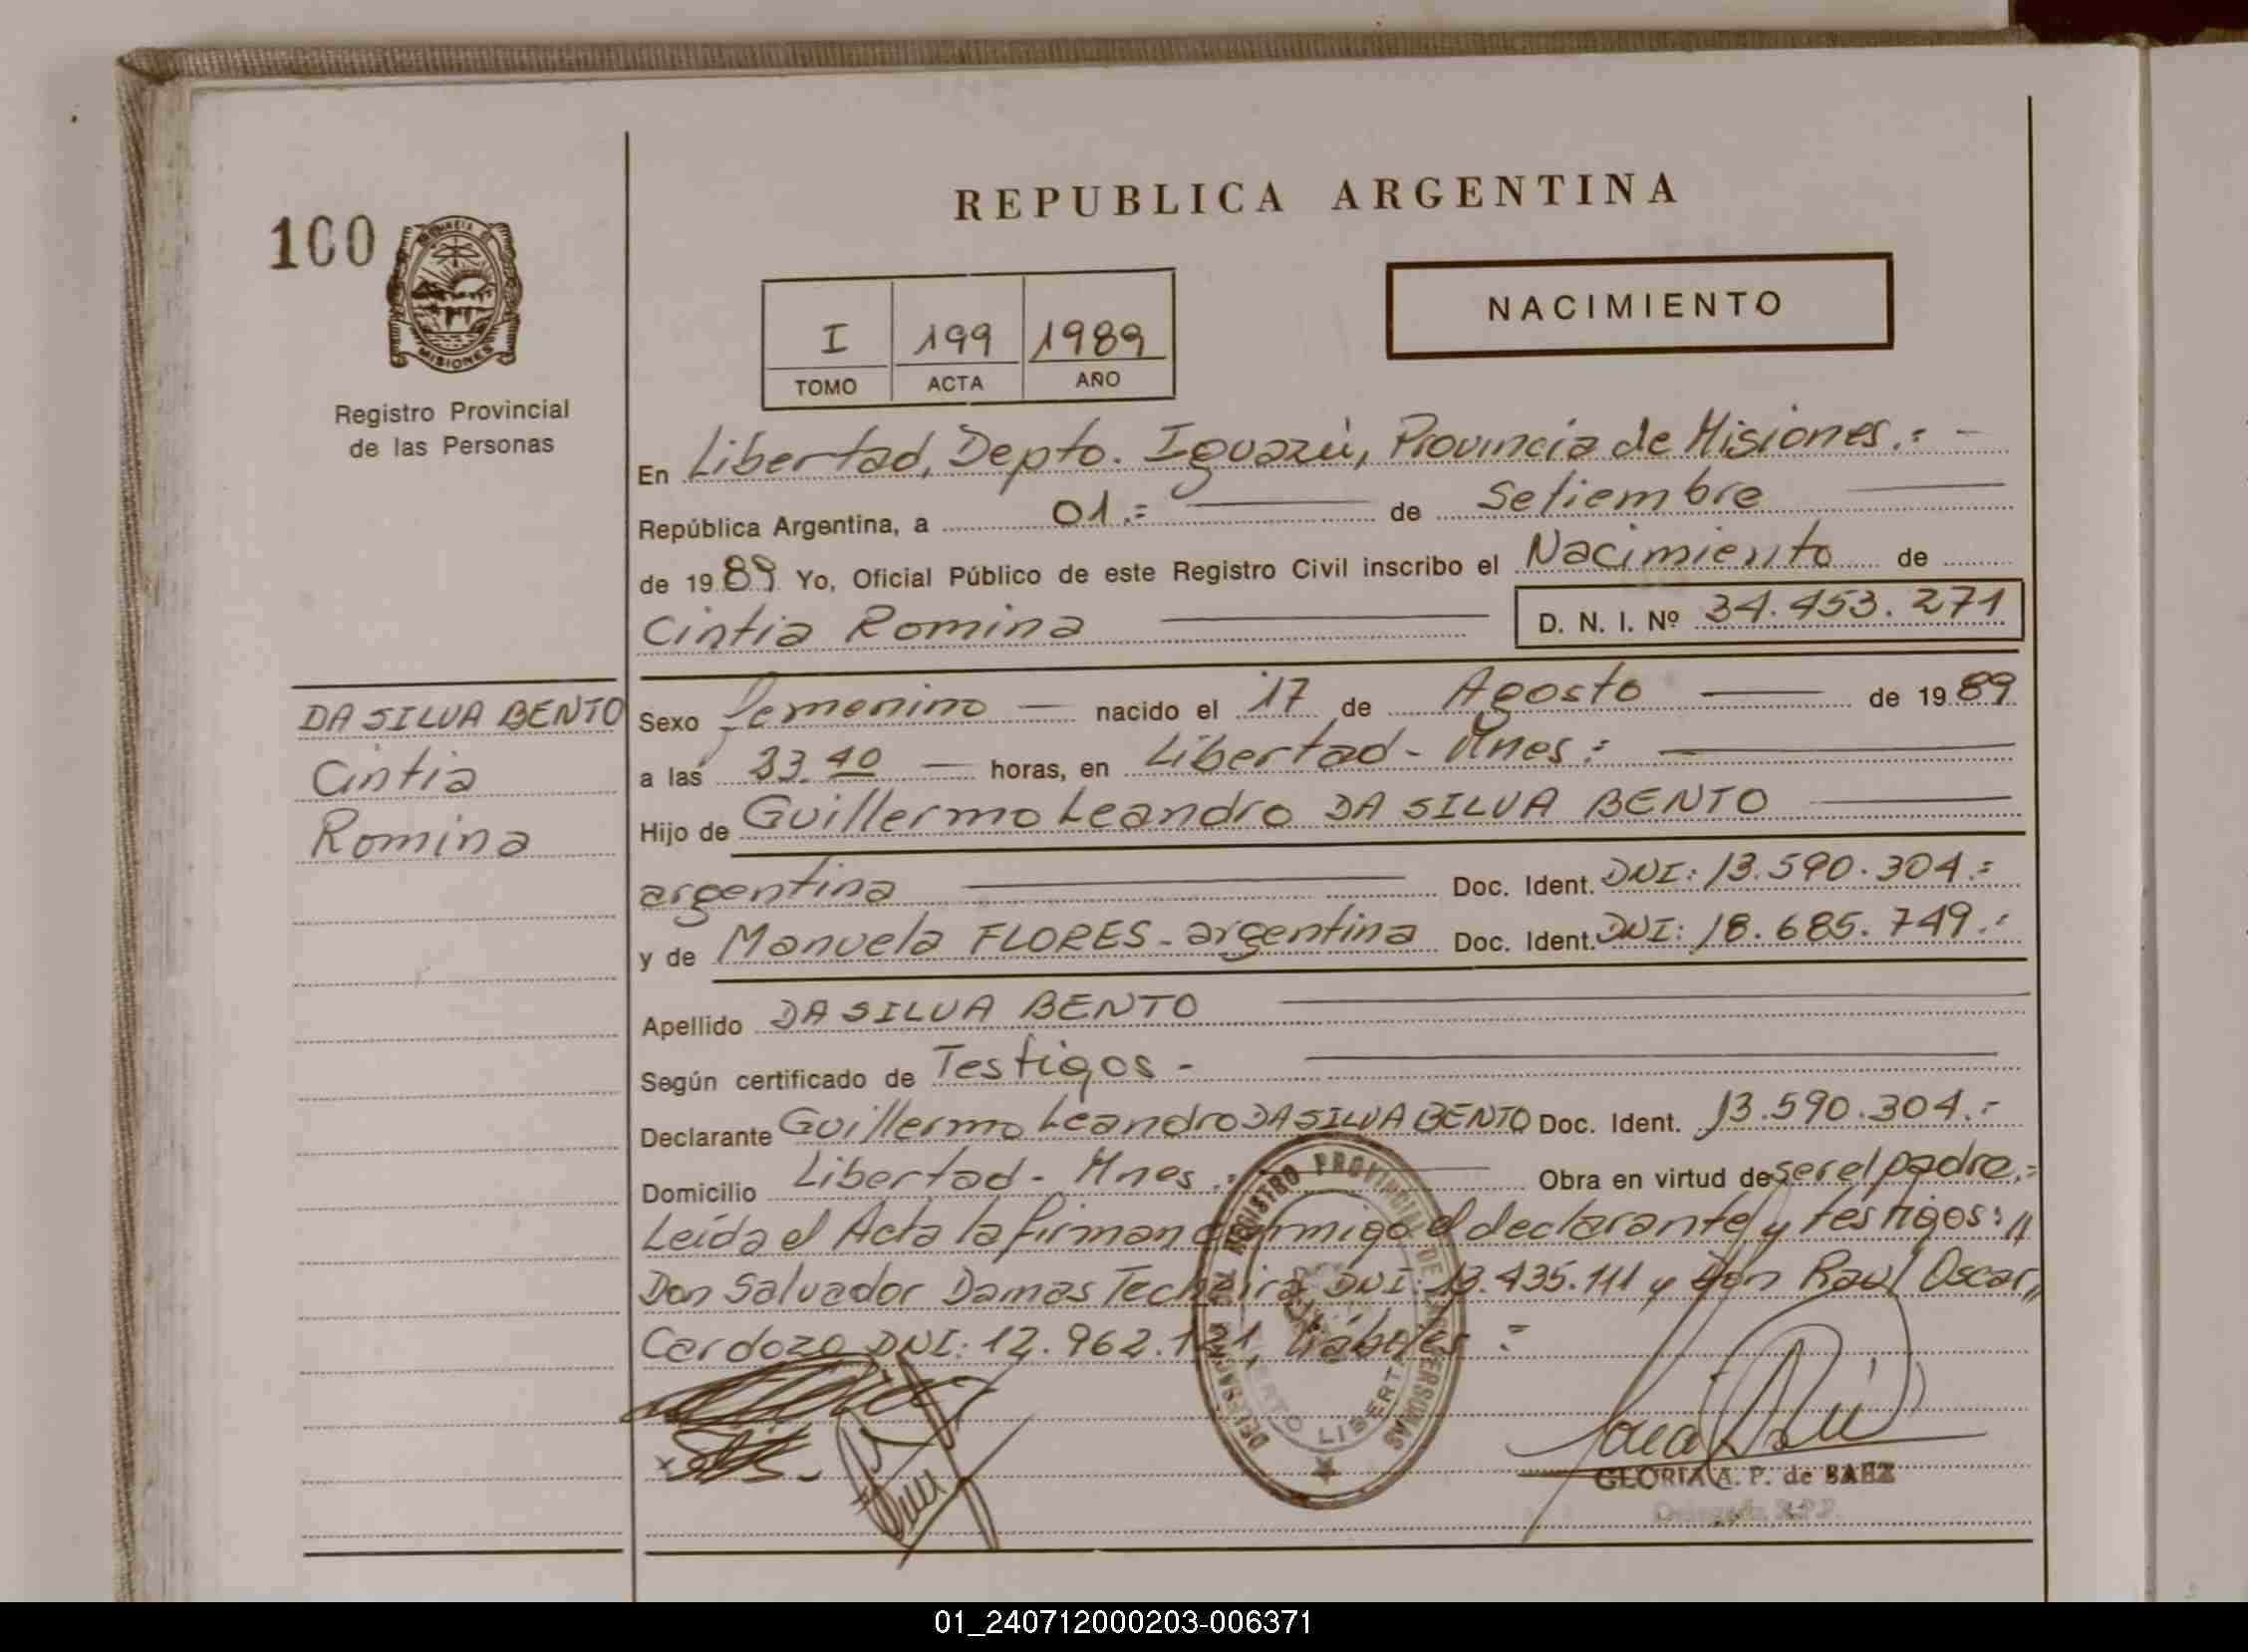 REPUBLICA ARGENTINA
100
PROVINCIA DE
MISIONES
Registro Provincial
de las Personas
I 199 1989
TOMO ACTA AÑO
NACIMIENTO
En Libertad, Depto. Iguazú, Provincia de Misiones.=-
República Argentina, a 01.= de Setiembre
de 1989 Yo, Oficial Público de este Registro Civil inscribo el Nacimiento de
Cintia Romina D. N. I. Nº 34.453.271
DA SILVA BENTO
Cintia
Romina
Sexo femenino nacido el 17 de Agosto de 1989
a las 23.40 horas, en Libertad - Mnes:
Hijo de Guillermo Leandro DA SILVA BENTO
argentina Doc. Ident. DNI: 13.590.304.=
y de Manuela FLORES - argentina Doc. Ident. DNI: 18.685.749.-
Apellido DA SILVA BENTO
Según certificado de Testigos -
Declarante Guillermo Leandro DA SILVA BENTO Doc. Ident. 13.590.304.-
Domicilio Libertad - Mnes.= Obra en virtud de ser el padre.=
Leída el Acta la firman conmigo el declarante y testigos: //
Don Salvador Damas Techeira DNI: 13.435.111 y Don Raul Oscar //
Cardozo DNI: 12.962.121, hábiles =
REGISTRO PROVINCIAL DE LAS PERSONAS
PUERTO LIBERTAD
GLORIA A. P. de BAEZ
Delegada R.P.P.
01_240712000203-006371